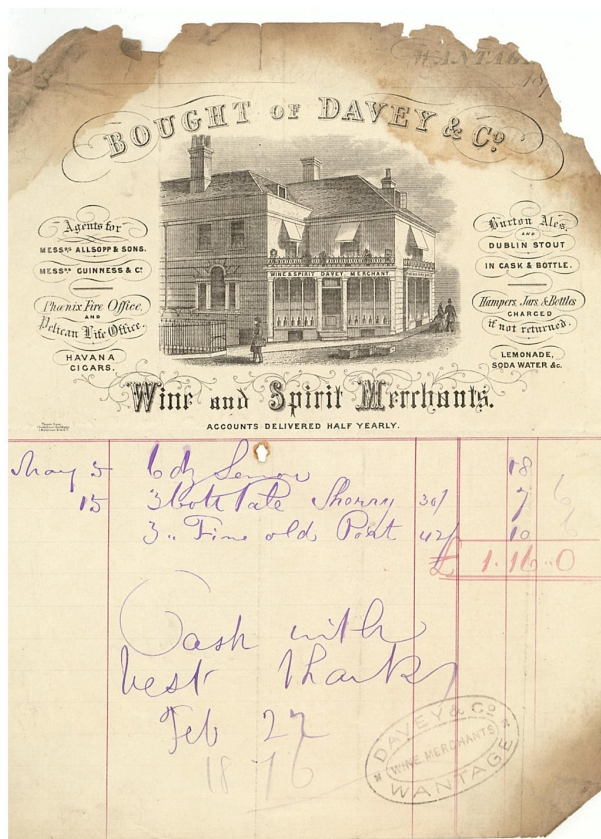 WANTAGE
187
BOUGHT OF DAVEY & Co.
Agents for
MESSRS ALLSOPP & SONS.
MESSRS GUINNESS & Co
Phœnix Fire Office,
AND
Pelican Life Office.
HAVANA
CIGARS.
WINE & SPIRIT DAVEY MERCHANT
Burton Ales,
AND
DUBLIN STOUT
IN CASK & BOTTLE.
Hampers, Jars, & Bottles
CHARGED
if not returned.
LEMONADE,
SODA WATER &c.
Wine and Spirit Merchants.
ACCOUNTS DELIVERED HALF YEARLY.
May 5 6 18
15 3 Bott Pale Sherry 30/ 7 6
3 " Fine old Port 42/ 10 6
£ 1.16.0
Cash with
best thanks
Feb 27
1876
DAVEY & Co.
WINE MERCHANTS
WANTAGE